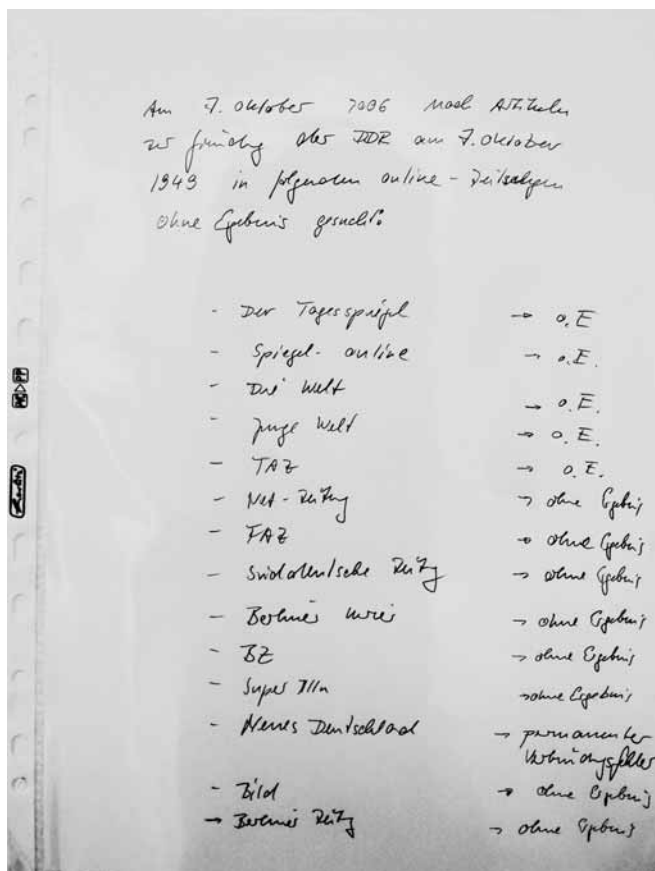 Am 7. Oktober 2006 nach Artikeln
zur Gründung der DDR am 7. Oktober
1949 in folgenden online-Zeitungen
ohne Ergebnis gesucht:
- Der Tagesspiegel → o.E
- Spiegel-online → o.E.
- Die Welt → o.E.
- junge Welt → o.E.
- TAZ → o.E.
- Net-Zeitung → ohne Ergebnis
- FAZ → ohne Ergebnis
- Süddeutsche Zeitung → ohne Ergebnis
- Berliner Kurier → ohne Ergebnis
- BZ → ohne Ergebnis
- Super Illu → ohne Ergebnis
- Neues Deutschland → permanenter
Verbindungsfehler
- Bild → ohne Ergebnis
→ Berliner Zeitung → ohne Ergebnis
PP